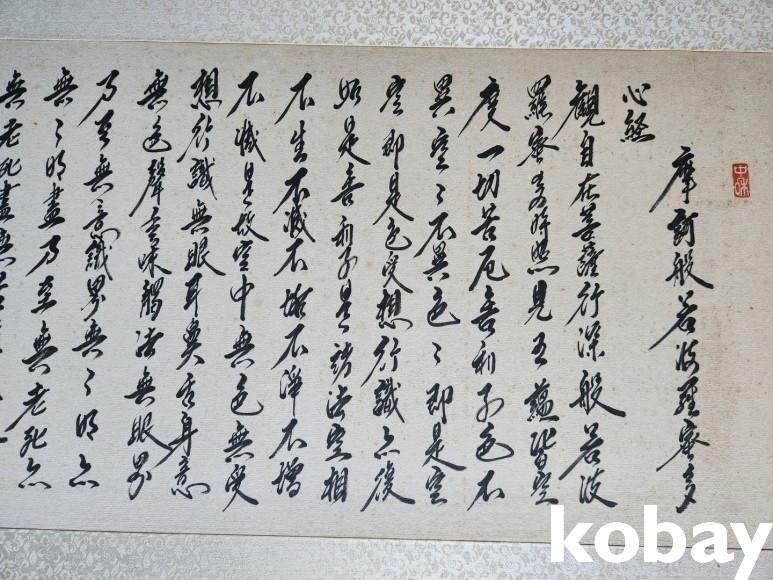 摩訶般若波羅蜜多
心經
觀自在菩薩行深般若波
羅蜜多時照見五蘊皆空
度一切苦厄舍利子色不
異空〻不異色〻即是空
空即是色受想行識亦復
如是舍利子是諸法空相
不生不滅不垢不淨不增
不減是故空中無色無受
想行識無眼耳鼻舌身意
無色聲香味觸法無眼界
乃至無意識界無〻明亦
無〻明盡乃至無老死亦
無老死盡無苦
kobay